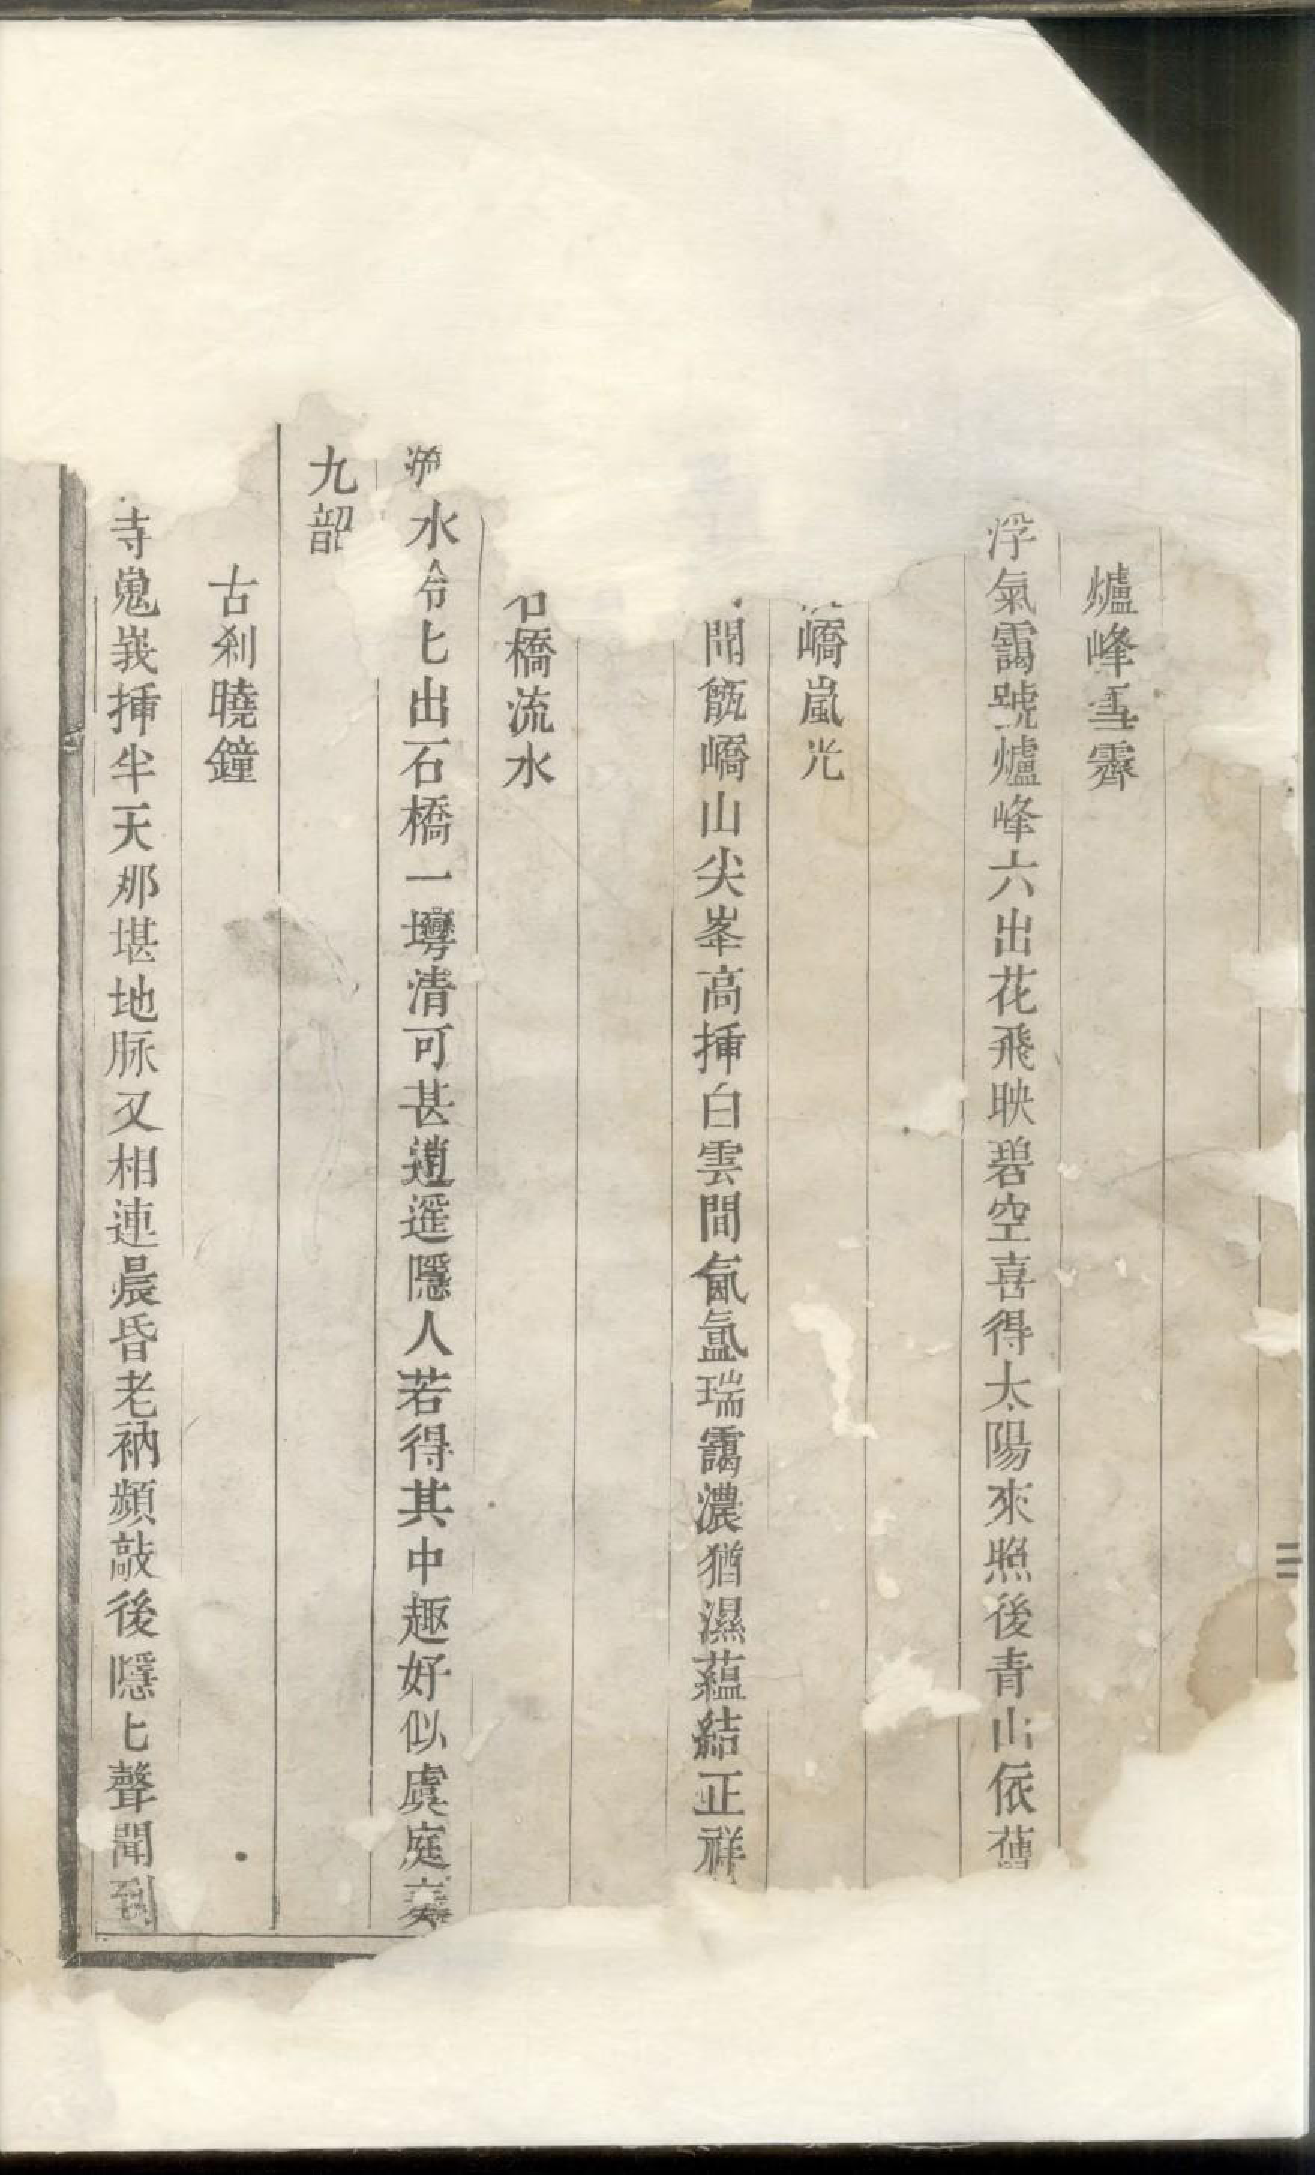 爐峰雪霽
浮氣靄號爐峰六出花飛映碧空喜得太陽來照後青山依舊
嶠嵐光
閒甑嶠山尖峯高揷白雲間氤氳瑞靄濃猶濕蘊結正祥
石橋流水
流水令〻出石橋一灣清可甚逍遥隱人若得其中趣好似虞庭奏
九韶
古刹曉鐘
寺嵬峩揷半天那堪地脉又相連晨昏老衲頻敲後隱〻聲聞到